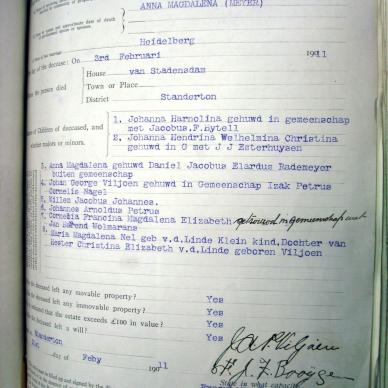 ANNA MAGDALENA (MEYER)
Heidelberg
of the decease: On 3rd Februari 1911
House van Stadensdam
the person died Town or Place
District Standerton
of Children of deceased, and
whether majors or minors.
1. Johanna Harnolina gehuwd in gemeenschap
met Jacobus.F.Bytell
2. Johanna Hendrina Welhelmina Christina
gehuwd in G met J J Esterhuysen
3. Anna Magdalena gehuwd Daniel Jacobus Elardus Rademeyer
buiten gemeenschap
4. Johan George Viljoen gehuwd in Gemeenschap Izak Petrus
Cornelis Nagel
5. Willem Jacobus Johannes.
6. Johannes Arnoldus Petrus
7. Cornebia Francina Magdalena Elizabeth getrouwd in gemeenschap
8. Jan Barend Wolmarans
9. Maria Magdalena Nel geb v.d.Linde Klein kind.Dochter van
Hester Christina Elizabeth v.d.Linde geboren Viljoen
the deceased left any movable property? Yes
the deceased left any immovable property? Yes
estimated that the estate exceeds £100 in value? Yes
deceased left a will? Yes
Standerton
day of Feby 19011
State in what capacity